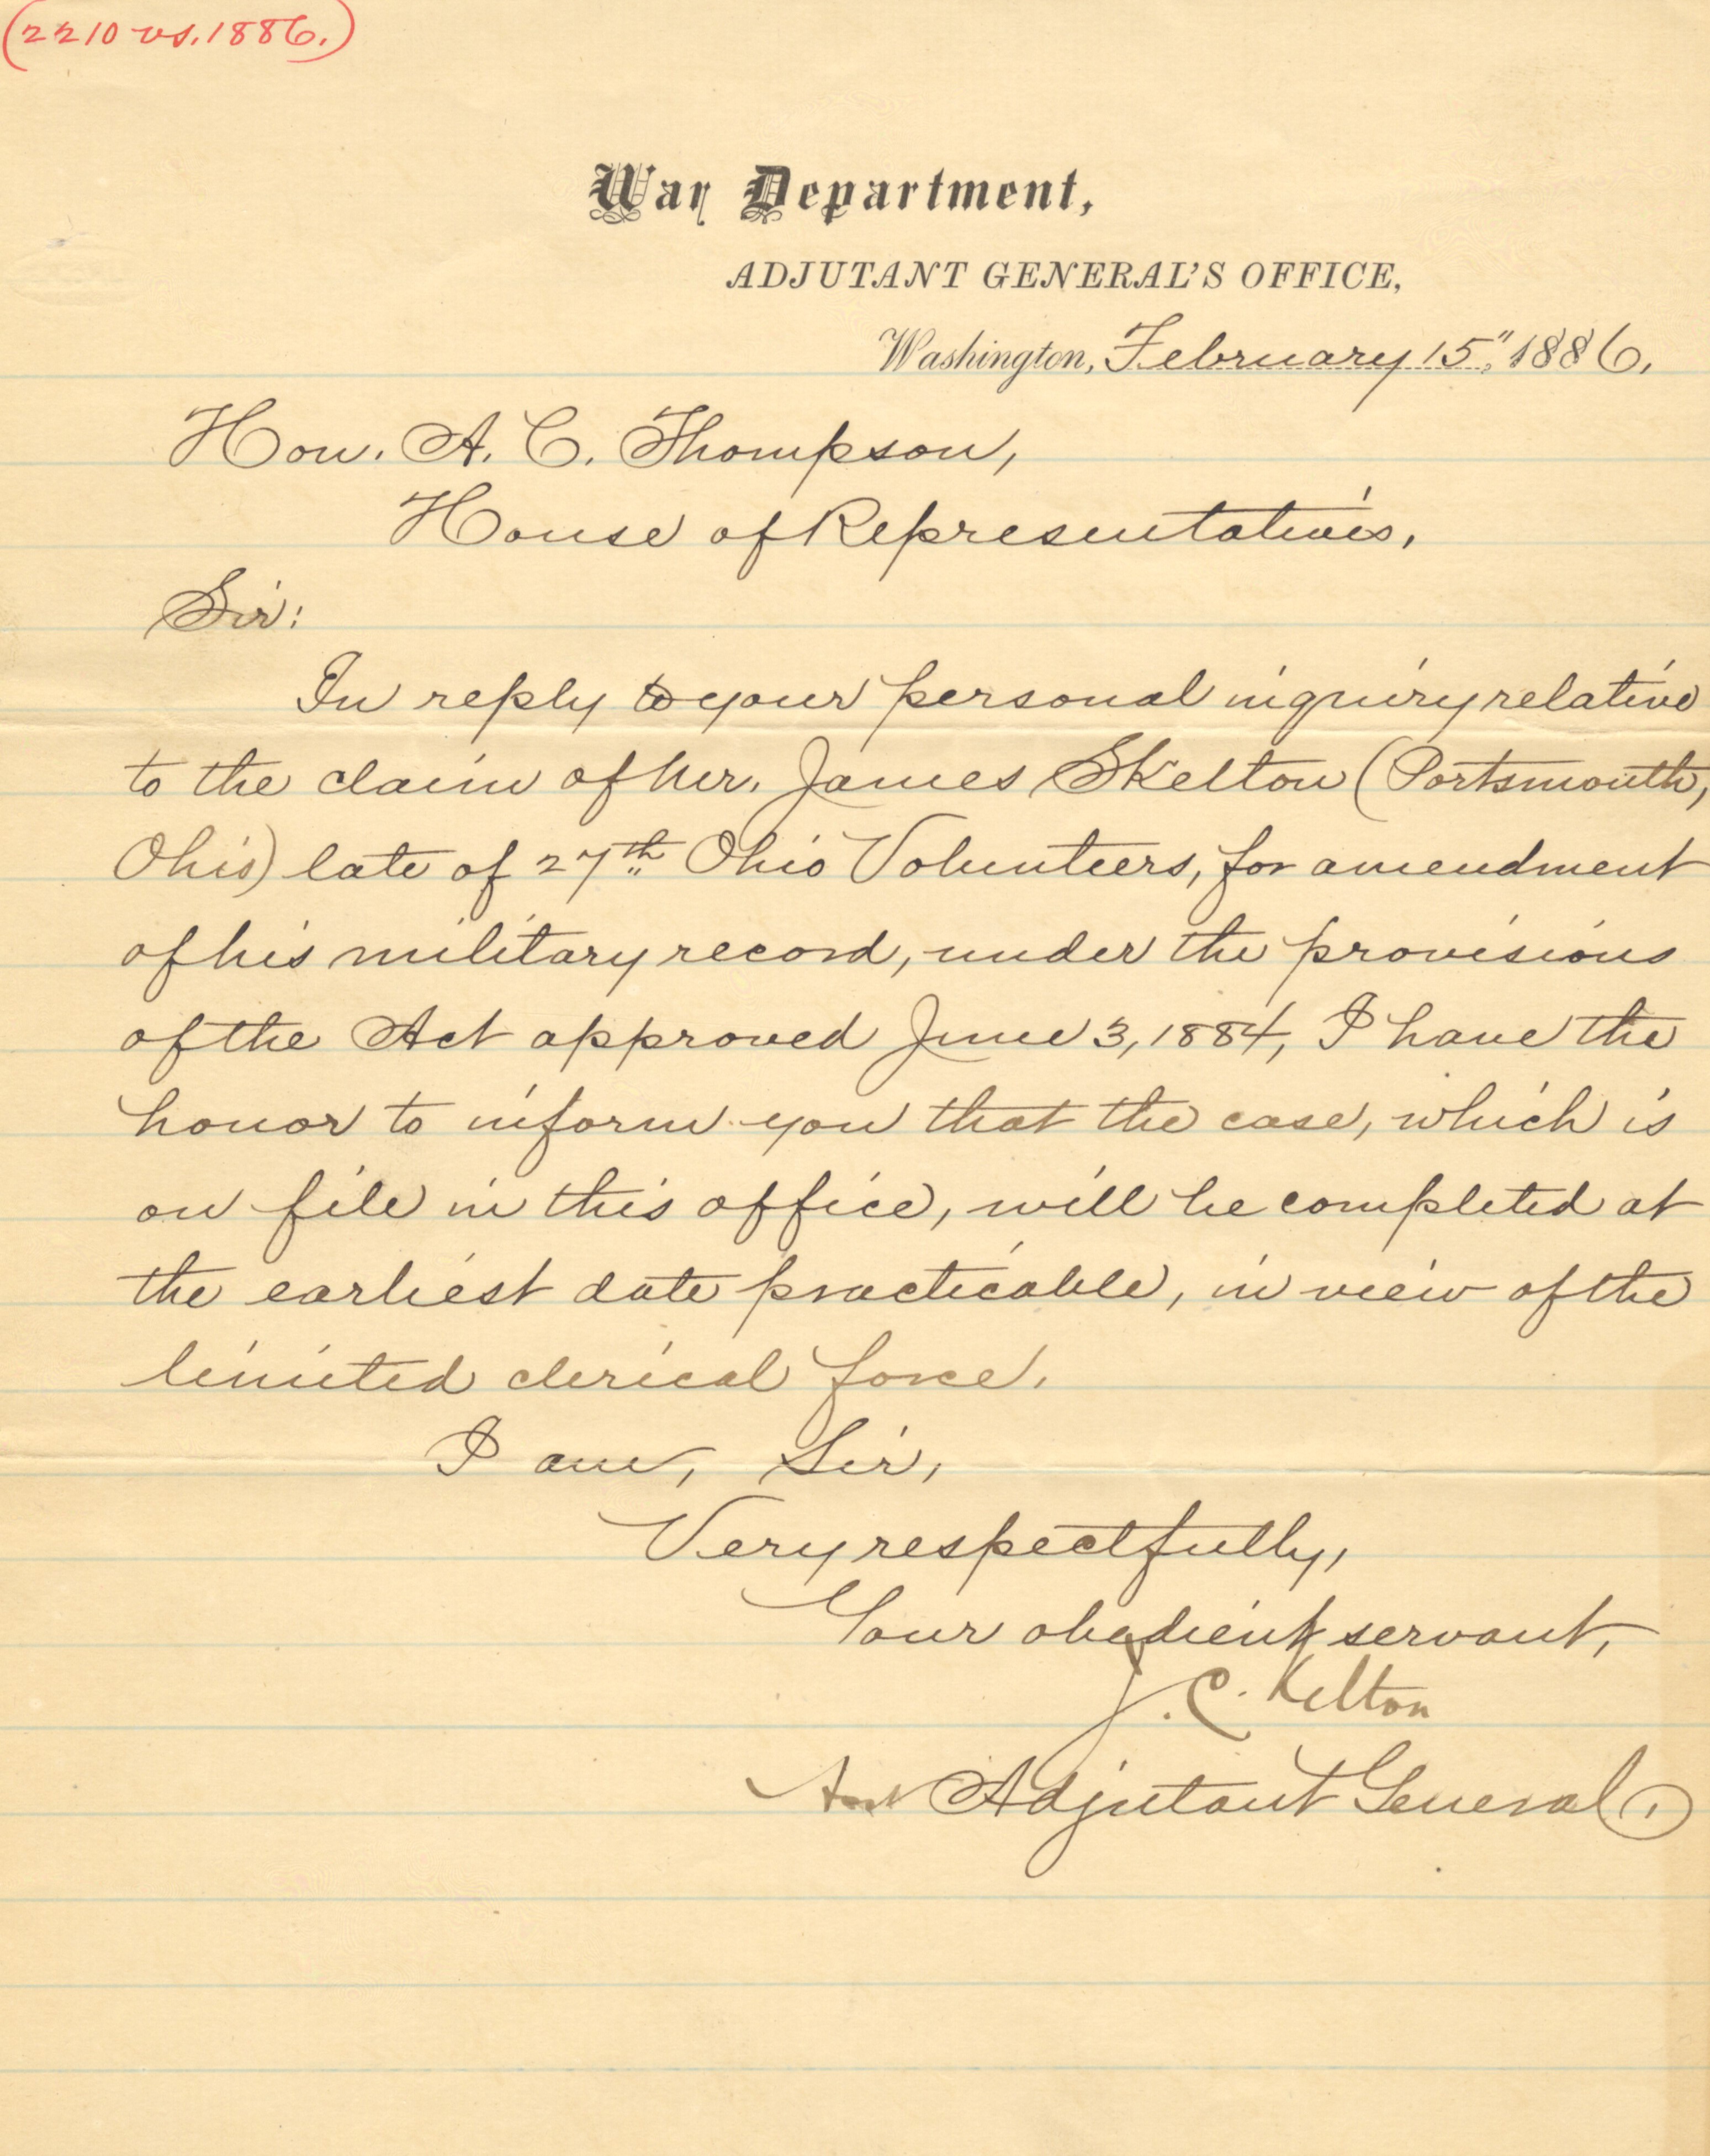 (2210 vs. 1886.)
War Department,
ADJUTANT GENERAL'S OFFICE,
Washington, February 15", 1886.
Hon. A. C. Thompson,
House of Representatives,
Sir:
In reply to your personal inquiry relative
to the claim of Mr. James Skelton (Portsmouth,
Ohio) late of 27th Ohio Volunteers, for amendment
of his military record, under the provisions
of the Act approved June 3, 1884, I have the
honor to inform you that the case, which is
on file in this office, will be completed at
the earliest date practicable, in view of the
limited clerical force.
I am, Sir,
Very respectfully,
Your obedient servant,
J. C. Kelton
Asst Adjutant General.